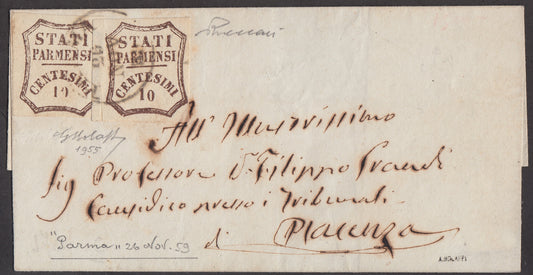 STATI
PARMENSI
CENTESIMI
10
STATI
PARMENSI
CENTESIMI
10
1955
All' Illustrissimo
Sig Professore D. Filippo Grandi
Causidico presso i Tribunali
di Piacenza
"Parma" 26 Nov. 59